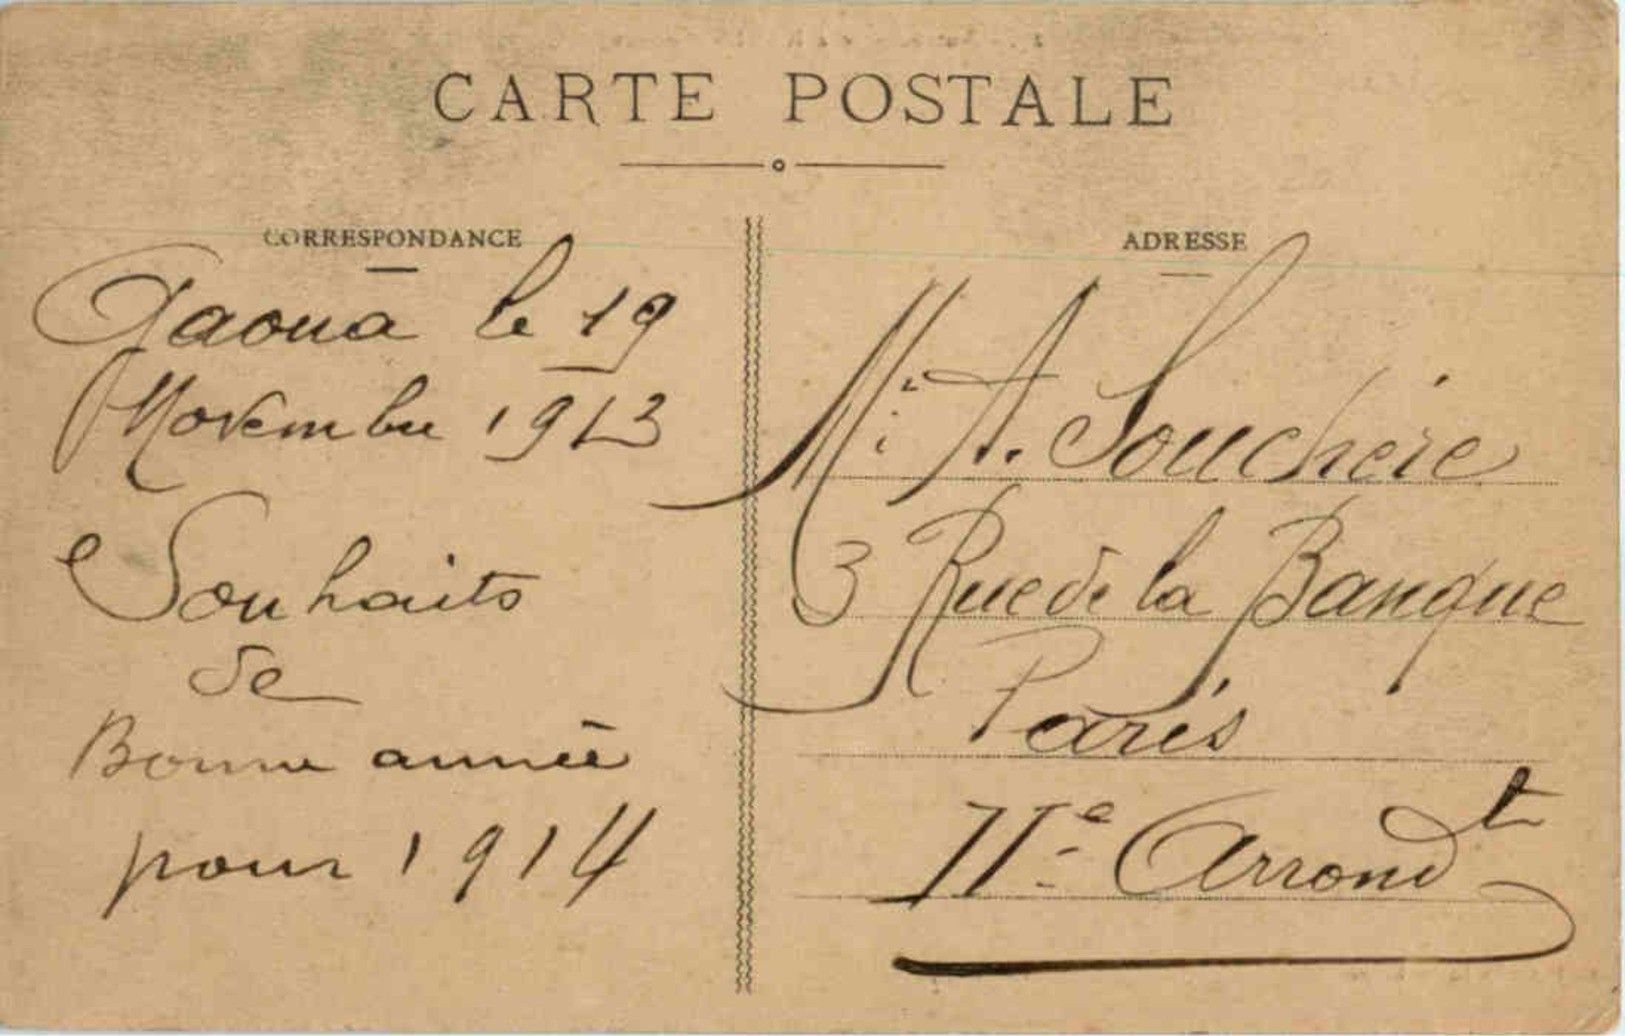 CARTE POSTALE
CORRESPONDANCE
Gaoua le 19
Novembre 1913
Souhaits
de
Bonne année
pour 1914
ADRESSE
Mr. A. Souchère
3 Rue de la Banque
Paris
IIe Arrondt